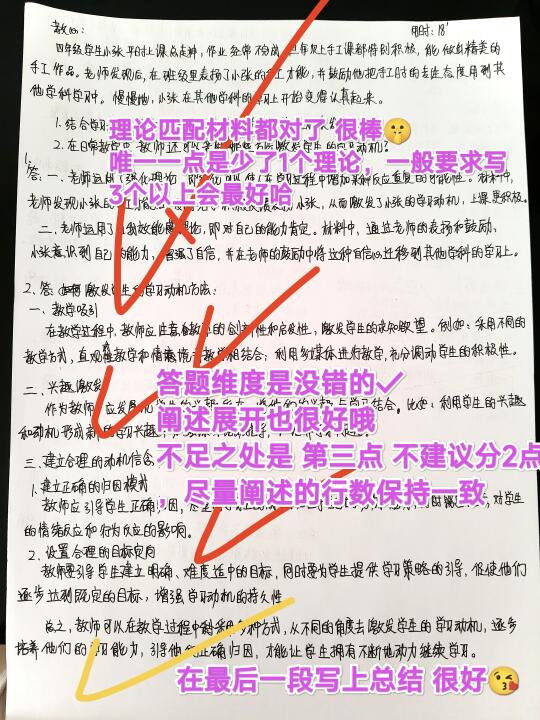 教师：
用时：18'
四年级学生小张平时上课总走神，作业经常不完成，但每次上手工课都特别积极，能做出精美的
手工作品。老师发现后，在班级里表扬了小张的手工才能，并鼓励他把手工时的专注态度用到其
他学科学习中。慢慢地，小张在其他学科的学习上开始变得认真起来。
1. 结合学习
理论匹配材料都对了 很棒🤫
2. 在日常教学中，教师还可以
激发学生的学习动机？
唯一一点是少了1个理论，一般要求写
3个以上会最好哈
1.
答：一、老师运用了强化理论
老师发现小张的
小张，从而激发了小张的学习动机，上课更积极。
二、老师运用了自我效能感理论，即对自己的能力肯定。材料中，通过老师的表扬和鼓励，
小张意识到自己的能力，增强了自信，并在老师的鼓励中将这种自信心迁移到其他学科的学习上。
2. 答：激发学生的学习动机方法：
一、教学吸引
在教学过程中，教师应注意教学的创新性和启发性，激发学生的求知欲望。例如：采用不同的
教学方式，直观性教学和情境性教学相结合；利用多媒体进行教学，充分调动学生的积极性。
二、兴趣激发
答题维度是没错的✓
作为教师，应发展
结合。比如：利用学生的兴趣
阐述展开也很好哦
和动机，形成新的学习兴趣
三、建立合理的动机信念
不足之处是 第三点 不建议分2点
，尽量阐述的行数保持一致
1. 建立正确的归因模式
教师应引导学生正确归因，
对学生
的情绪反应和行为反应的影响。
2. 设置合理的目标定向
教师要引导学生建立明确、难度适中的目标，同时要为学生提供学习策略的引导，促使他们
逐步达到既定的目标，增强学习动机的持久性
总之，教师可以在教学过程中利用多种方式，从不同的角度去激发学生的学习动机，逐步
培养他们的学习能力，引导他们正确归因，才能让学生拥有不断地动力继续学习。
在最后一段写上总结 很好😘